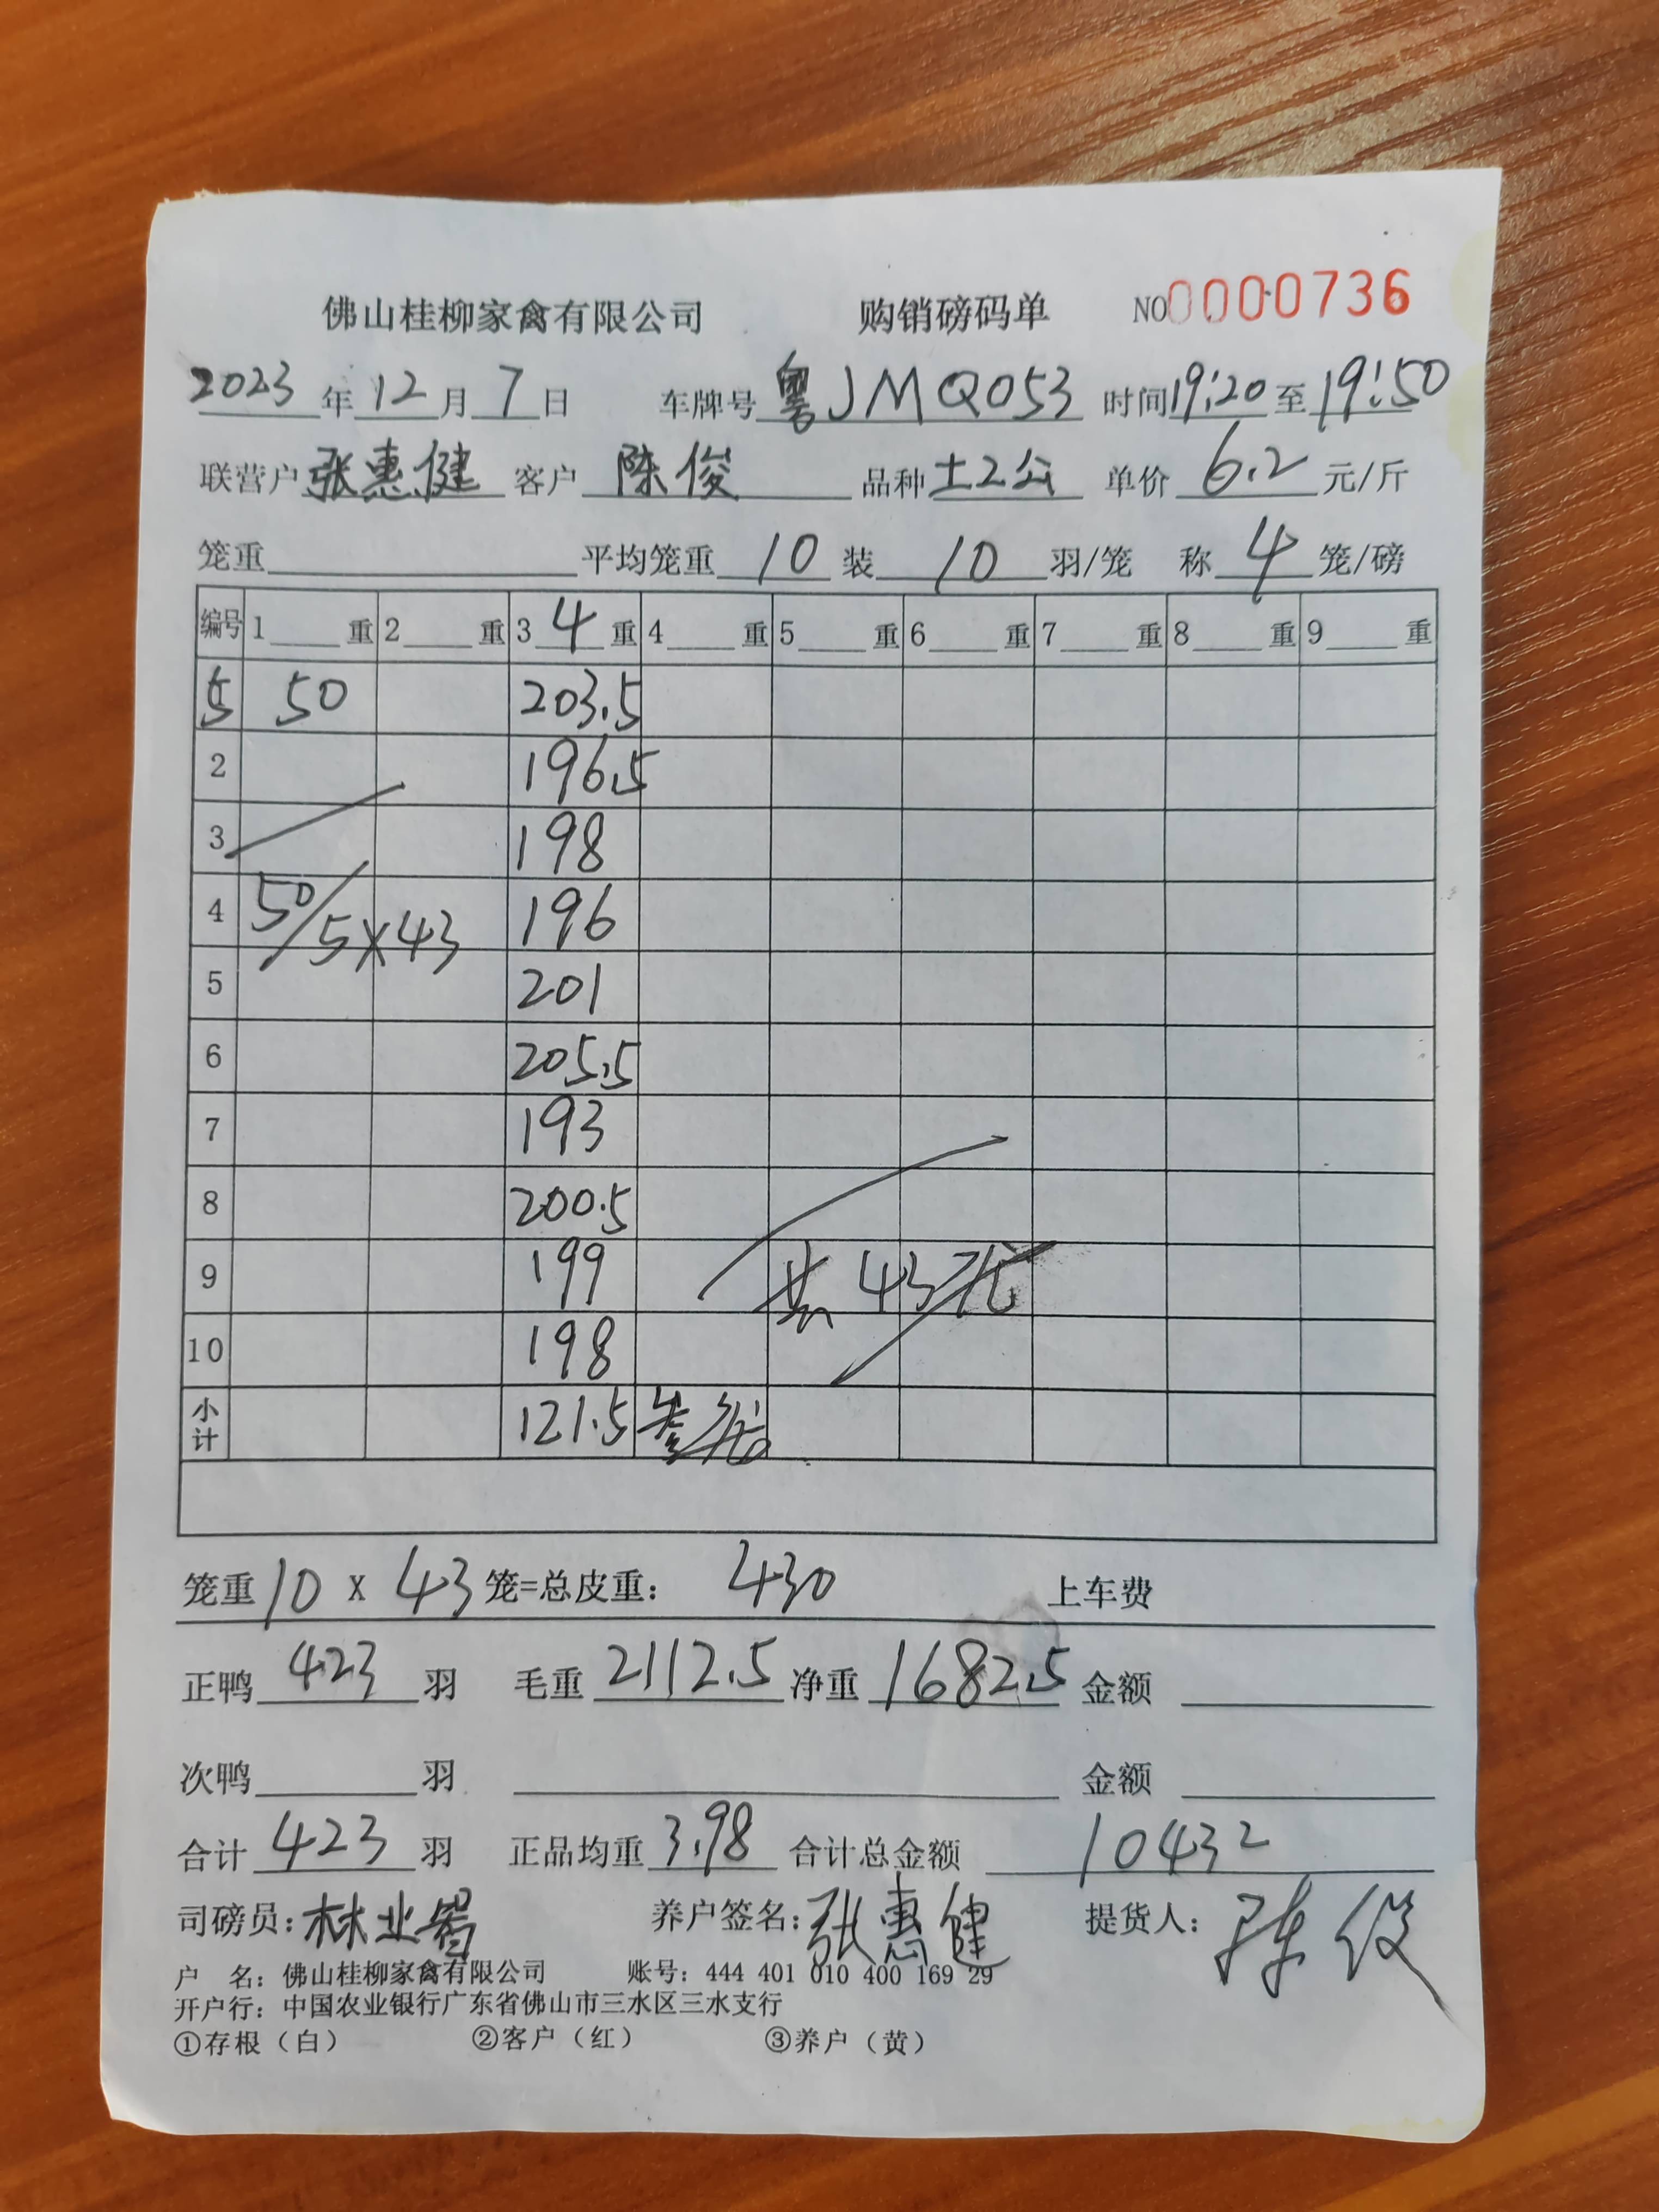 佛山桂柳家禽有限公司 购销磅码单 NO0000736
2023年12月7日 车牌号 粤JMQ053 时间19:20至19:50
联营户 张惠健 客户 陈俊 品种 土2公 单价 6.2 元/斤
笼重 平均笼重 10 装 10 羽/笼 称 4 笼/磅
编号 1 重 2 重 3 4 重 4 重 5 重 6 重 7 重 8 重 9 重
5 50 203.5
2 196.5
3 198
4 50/5×43 196
5 201
6 205.5
7 193
8 200.5
9 199 共43笼
10 198
小计 121.5
笼重10 X 43笼=总皮重: 430 上车费
正鸭 423 羽 毛重 2112.5 净重 1682.5 金额
次鸭 羽 金额
合计 423 羽 正品均重 3.98 合计总金额 10432
司磅员: 林业 养户签名: 张惠健 提货人: 陈俊
户 名: 佛山桂柳家禽有限公司 账号: 444 401 010 400 169 29
开户行: 中国农业银行广东省佛山市三水区三水支行
①存根（白） ②客户（红） ③养户（黄）